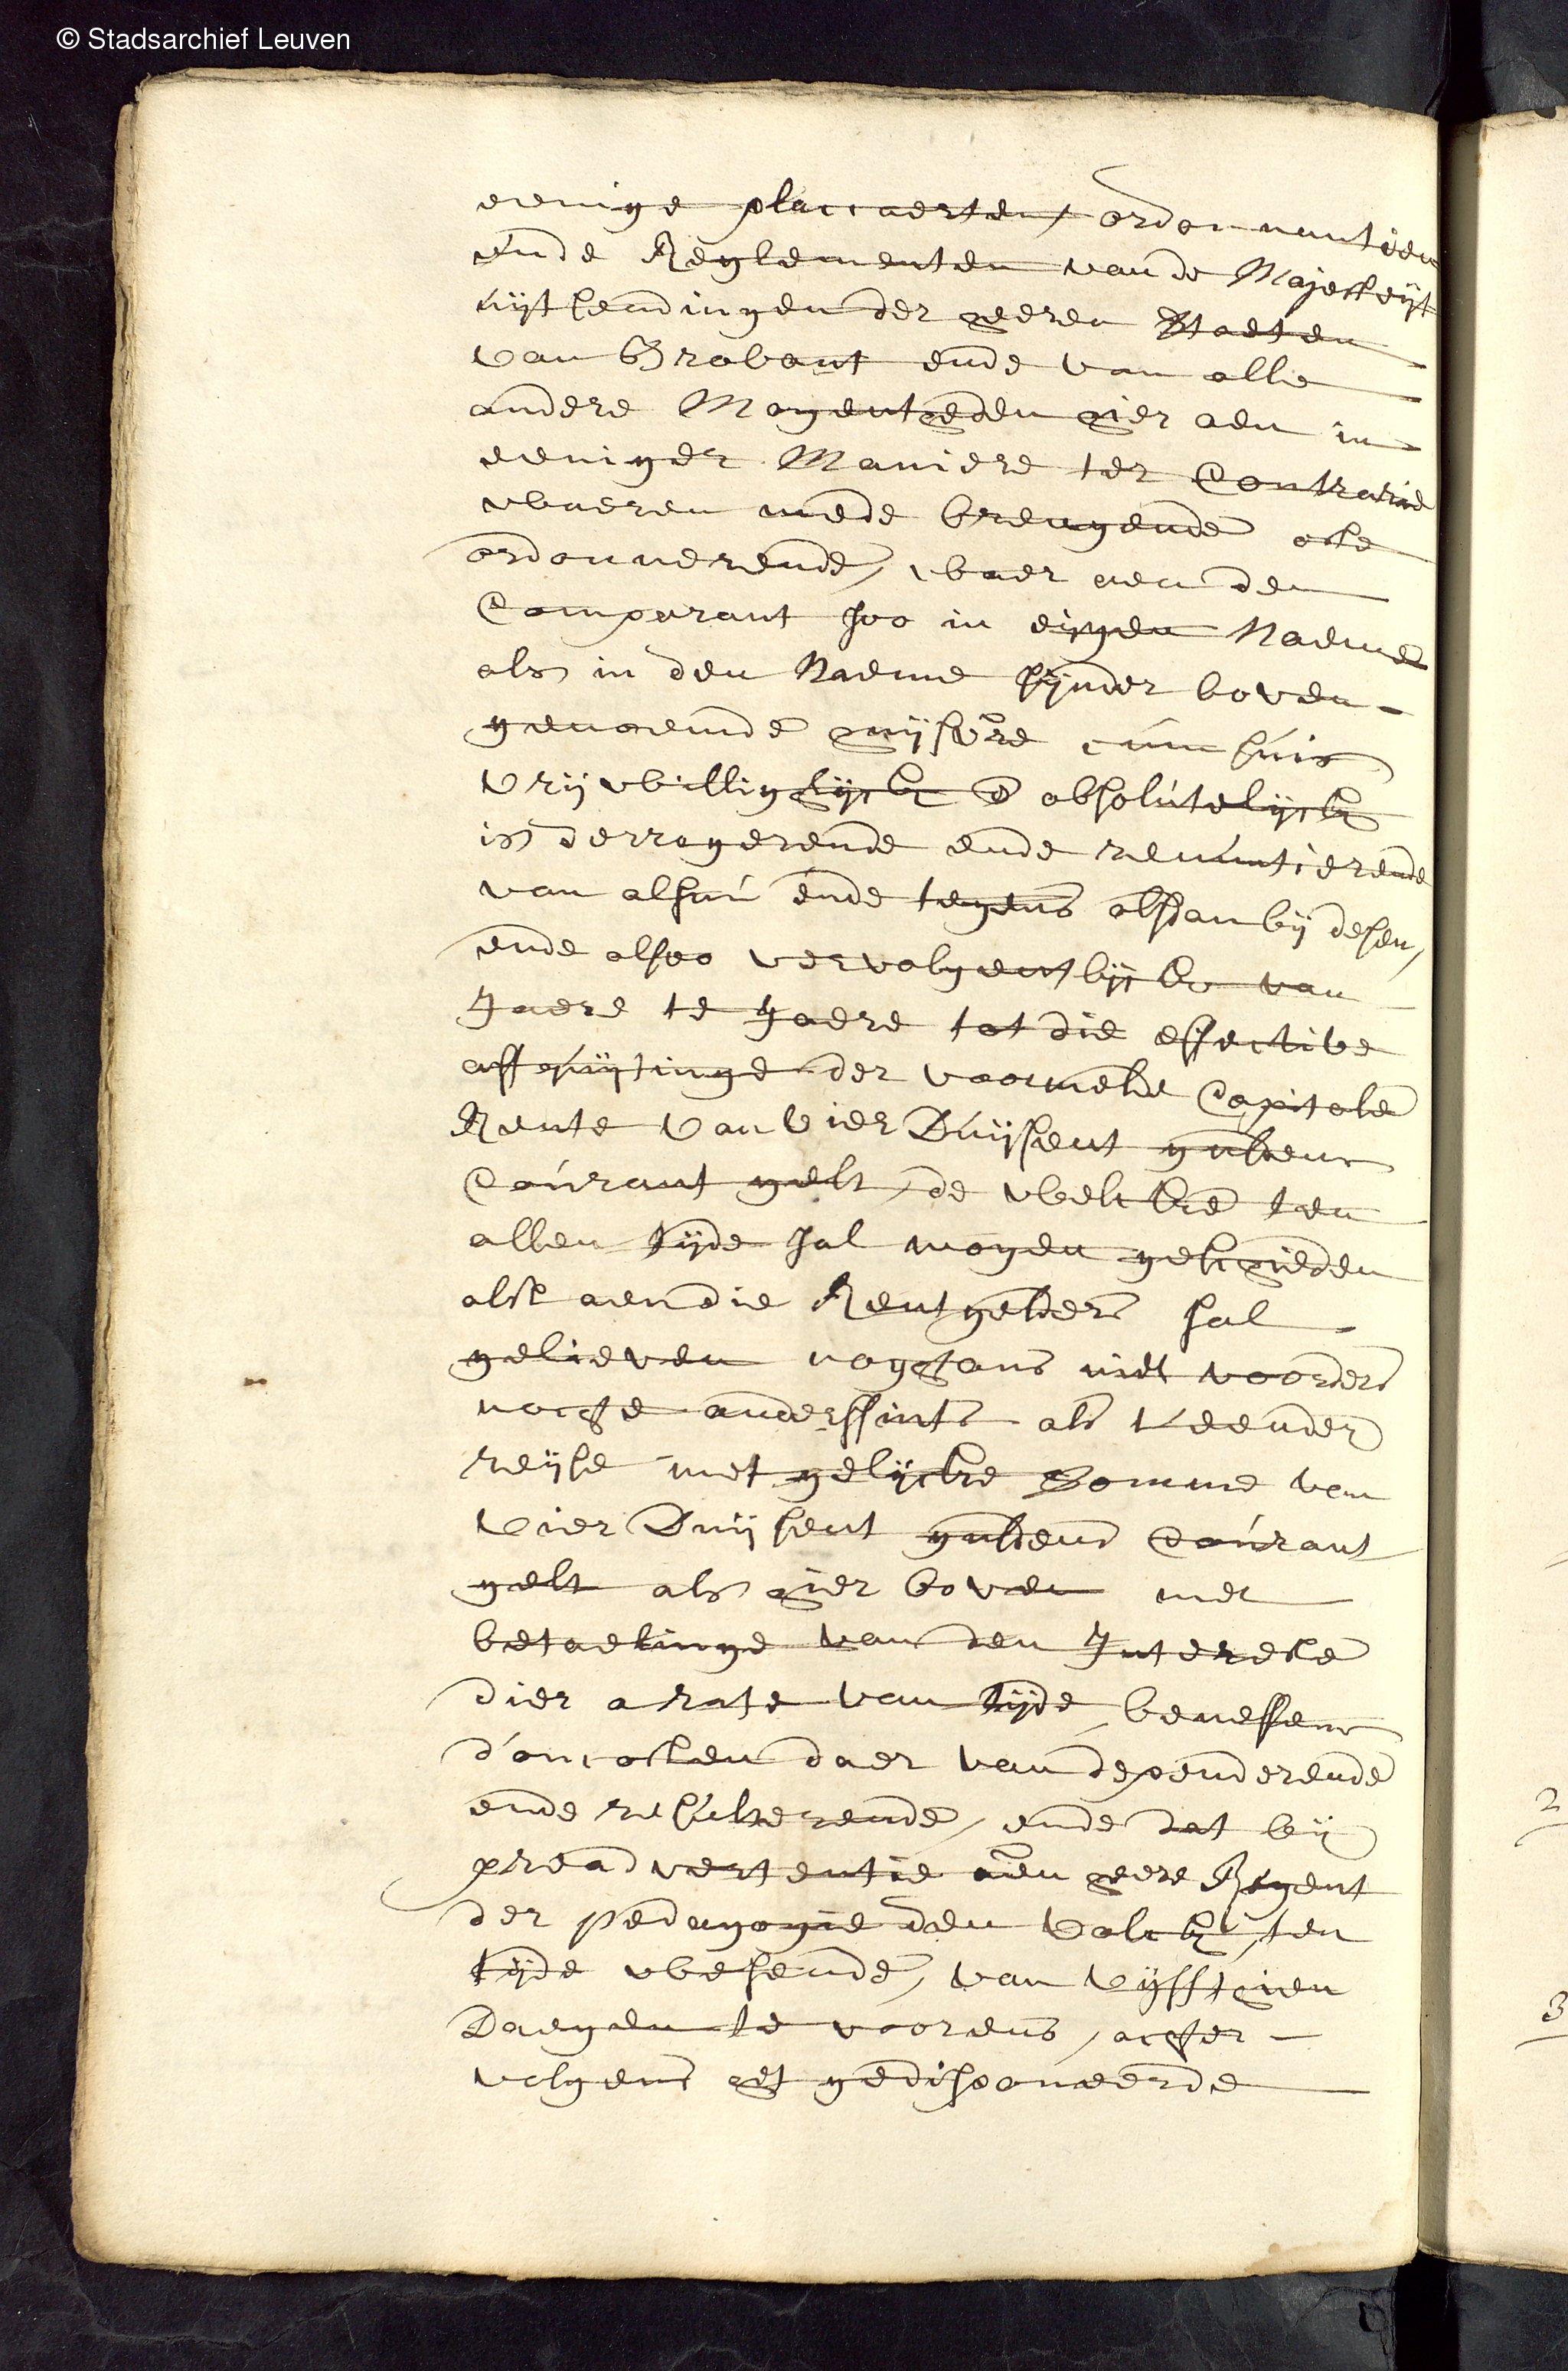 © Stadsarchief Leuven
eenige placcaerten, ordonnantien
ende Reglementen van de Majesteÿt
uÿtsendingen der heeren Staeten
van Brabant ende van alle
andere Mogentheden hier aen in
eeniger Maniere ter Contrarie
waeren mede brengende oft
ordonnerende, waer aen den
Comparant soo in eijgen Naeme
als in den Naeme sijnder boven-
genoemde huijsvre cum suis
vrijwilliglijck e absolutelijck
is derrogerende ende renuntierende
van alsnu ende tegens alsdan bij desen,
ende alsoo vervolgentlijck van
Jaere te Jaere tot die effective
affquijtinge der voormelde Capitale
Rente van vier Duijsent guldens
Courant gelt, de welcke ten
allen tijde sal mogen geschieden
alst aen die Rentgelders sal
gelieven nogtans niet voorders
nochte anderssints als t'eender
reijse met gelijcke Somme van
vier Duijsent guldens Courant
gelt als hier boven met
betaelinge van den Intereste
dier a rate van tijde, beneffens
d'oncosten daer van dependerende
ende resulterende, ende dat bij
preadvertentie aen heere Regent
der pedagogie den Valck, ten
tijde wesende, van vijffthien
Daegen te voorens, achter-
volgens het gedisponeerde